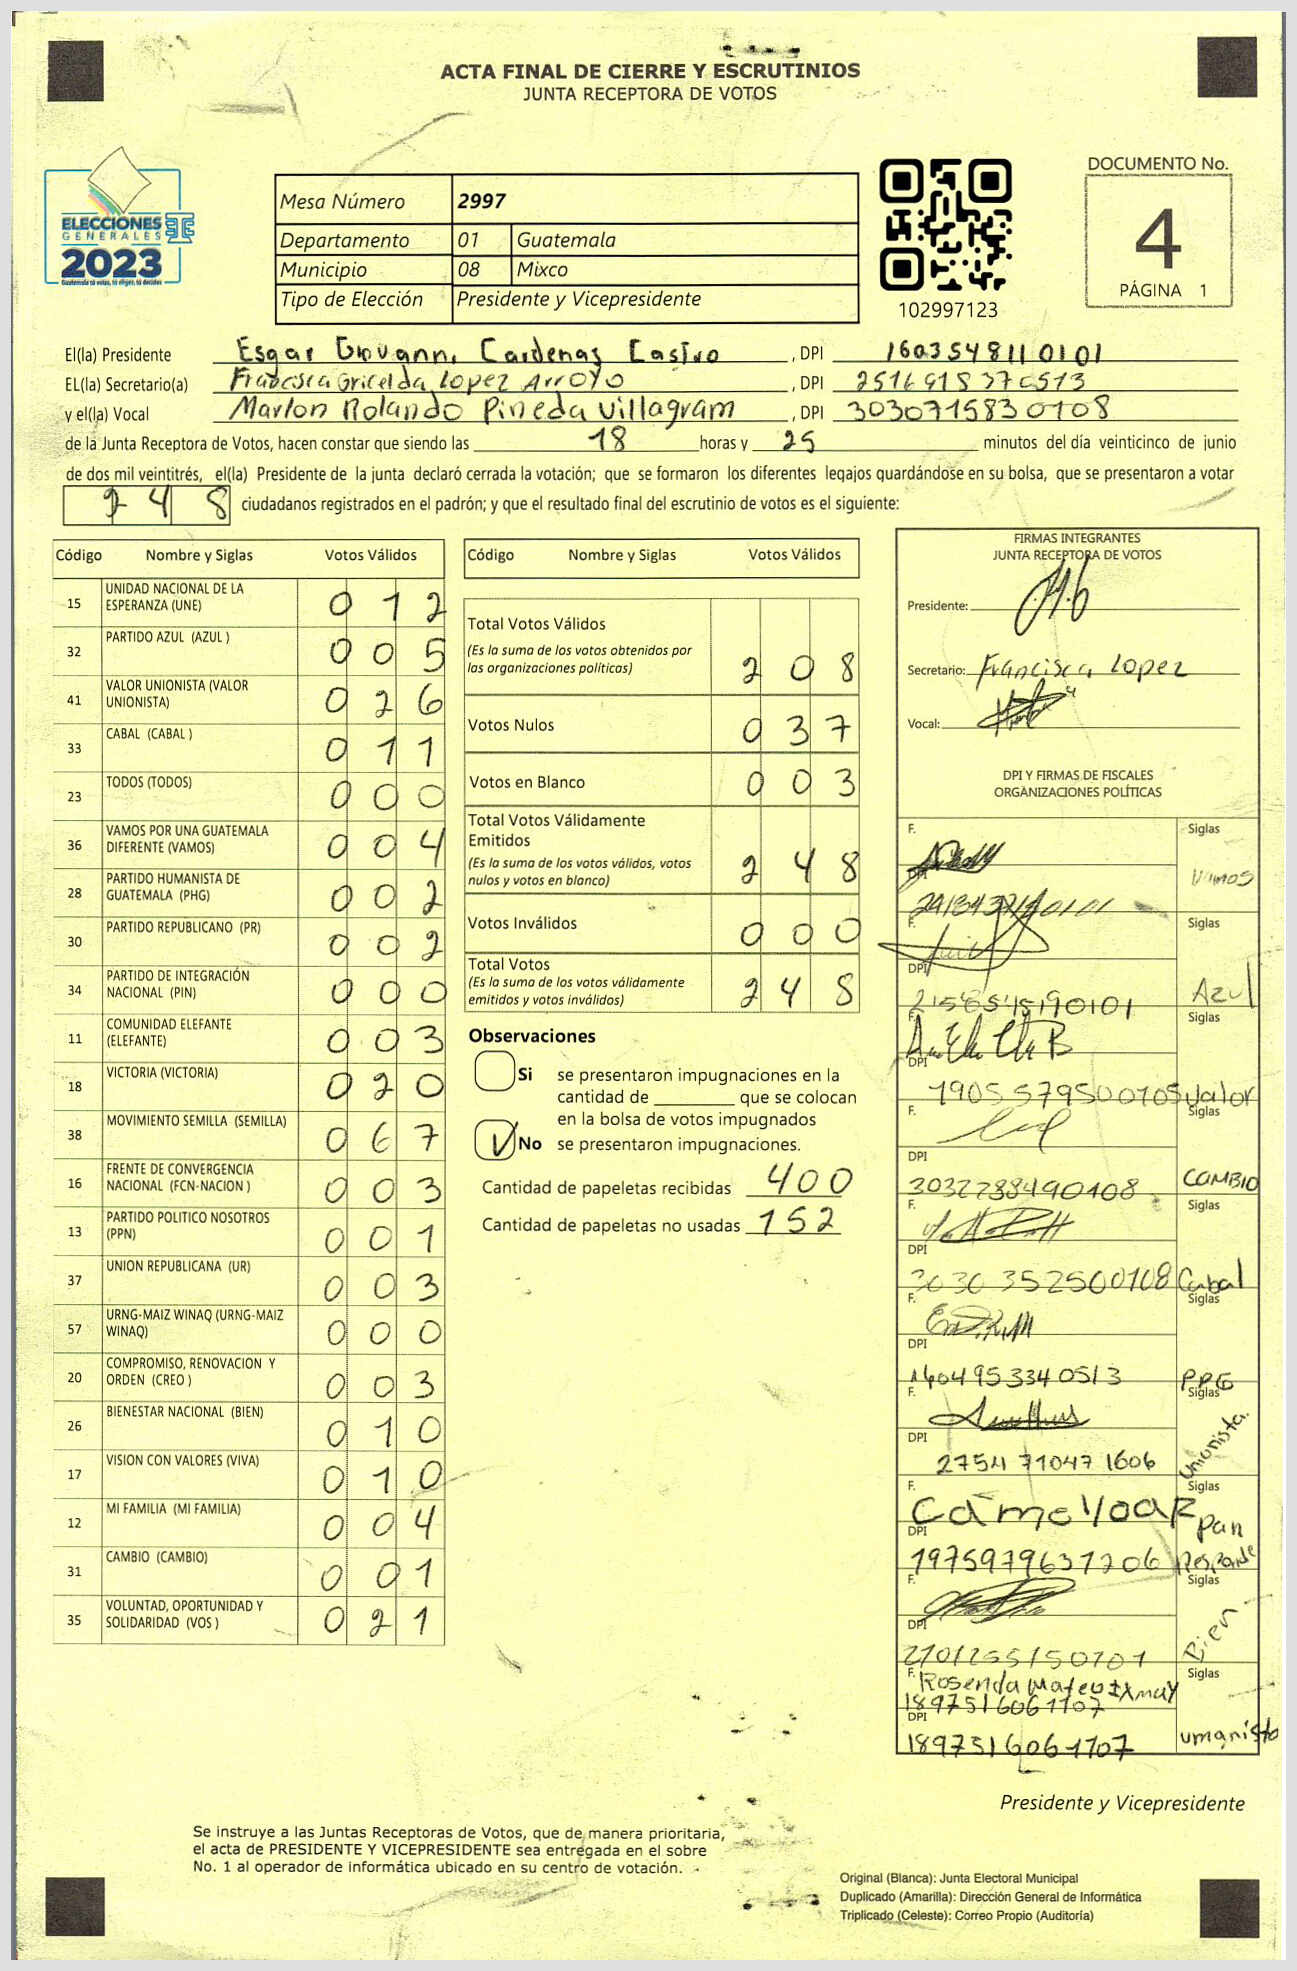 ACTA FINAL DE CIERRE Y ESCRUTINIOS
JUNTA RECEPTORA DE VOTOS
ELECCIONES
GENERALES
2023
Guatemala tú votas, tú eliges, tú decides
Mesa Número 2997
Departamento 01 Guatemala
Municipio 08 Mixco
Tipo de Elección Presidente y Vicepresidente
102997123
DOCUMENTO No.
4
PÁGINA 1
El(la) Presidente Esgar Giovanni Cardenas Castro , DPI 1603548110101
EL(la) Secretario(a) Francisca Gricelda Lopez Arroyo , DPI
y el(la) Vocal Marlon Rolando Pineda Villagram , DPI 3030715830108
de la Junta Receptora de Votos, hacen constar que siendo las 18 horas y 25 minutos del día veinticinco de junio
de dos mil veintitrés, el(la) Presidente de la junta declaró cerrada la votación; que se formaron los diferentes legajos quardándose en su bolsa, que se presentaron a votar
248 ciudadanos registrados en el padrón; y que el resultado final del escrutinio de votos es el siguiente:
Código Nombre y Siglas Votos Válidos
15 UNIDAD NACIONAL DE LA
ESPERANZA (UNE) 012
32 PARTIDO AZUL (AZUL ) 005
41 VALOR UNIONISTA (VALOR
UNIONISTA) 026
33 CABAL (CABAL ) 011
23 TODOS (TODOS) 000
36 VAMOS POR UNA GUATEMALA
DIFERENTE (VAMOS) 004
28 PARTIDO HUMANISTA DE
GUATEMALA (PHG) 002
30 PARTIDO REPUBLICANO (PR) 002
34 PARTIDO DE INTEGRACIÓN
NACIONAL (PIN) 000
11 COMUNIDAD ELEFANTE
(ELEFANTE) 003
18 VICTORIA (VICTORIA) 020
38 MOVIMIENTO SEMILLA (SEMILLA) 067
16 FRENTE DE CONVERGENCIA
NACIONAL (FCN-NACION ) 003
13 PARTIDO POLITICO NOSOTROS
(PPN) 001
37 UNION REPUBLICANA (UR) 003
57 URNG-MAIZ WINAQ (URNG-MAIZ
WINAQ) 000
20 COMPROMISO, RENOVACION Y
ORDEN (CREO ) 003
26 BIENESTAR NACIONAL (BIEN) 010
17 VISION CON VALORES (VIVA) 010
12 MI FAMILIA (MI FAMILIA) 004
31 CAMBIO (CAMBIO) 001
35 VOLUNTAD, OPORTUNIDAD Y
SOLIDARIDAD (VOS ) 021
Código Nombre y Siglas Votos Válidos
Total Votos Válidos
(Es la suma de los votos obtenidos por
las organizaciones políticas) 208
Votos Nulos 037
Votos en Blanco 003
Total Votos Válidamente
Emitidos
(Es la suma de los votos válidos, votos
nulos y votos en blanco) 248
Votos Inválidos 000
Total Votos
(Es la suma de los votos válidamente
emitidos y votos inválidos) 248
Observaciones
Si se presentaron impugnaciones en la
cantidad de que se colocan
en la bolsa de votos impugnados
No se presentaron impugnaciones.
Cantidad de papeletas recibidas 400
Cantidad de papeletas no usadas 152
FIRMAS INTEGRANTES
JUNTA RECEPTORA DE VOTOS
Presidente:
Secretario: Francisca Lopez
Vocal:
DPI Y FIRMAS DE FISCALES
ORGANIZACIONES POLÍTICAS
F. Siglas
DPI Vamos
F. Siglas
DPI Azul
F. Siglas
DPI
1905579500105 Valor
F. Siglas
DPI
3032788490108 CAMBIO
F. Siglas
DPI
3030352500108 Cabal
F. Siglas
DPI
F. Siglas
DPI
2754710471606 Unionista
F. Siglas
DPI pan
1975979631206
F. Siglas
DPI
Bien
F. Rosenda Mateo Ixmay Siglas
1897516061107
DPI
1897516061107 umanista
Presidente y Vicepresidente
Se instruye a las Juntas Receptoras de Votos, que de manera prioritaria,
el acta de PRESIDENTE Y VICEPRESIDENTE sea entregada en el sobre
No. 1 al operador de informática ubicado en su centro de votación.
Original (Blanca): Junta Electoral Municipal
Duplicado (Amarilla): Dirección General de Informática
Triplicado (Celeste): Correo Propio (Auditoría)